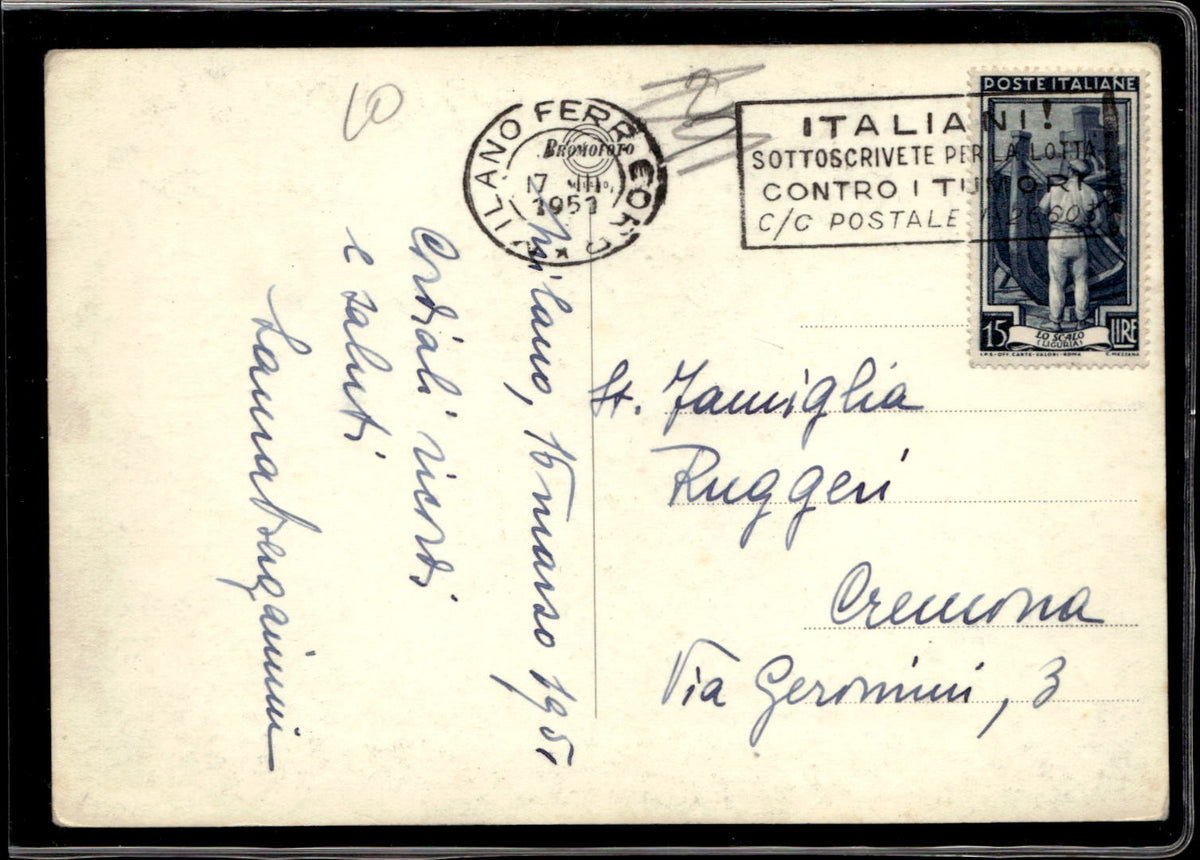 10
MILANO FERR
17 III
1951
BROMOFOTO
ITALIANI!
SOTTOSCRIVETE PER LA LOTTA
CONTRO I TUMORI
C/C POSTALE
POSTE ITALIANE
15 LIRE
LO SCALO
(LIGURIA)
I.P.S.-OFF. CARTE-VALORI-ROMA
C. MEZZANA
Milano, 16 marzo 1951
Cordiali ricordi
e saluti
Famiglia
Ruggeri
Cremona
Via Geromini, 3